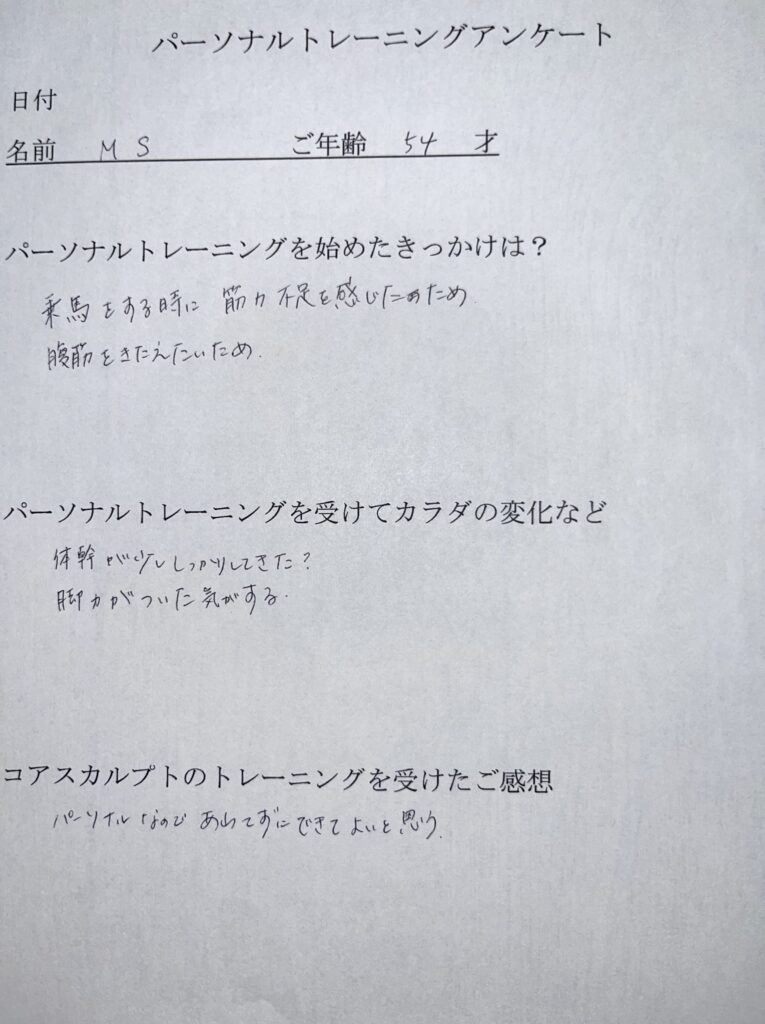 パーソナルトレーニングアンケート
日付
名前 M S ご年齢 54 才
パーソナルトレーニングを始めたきっかけは？
乗馬をする時に 筋力不足を感じたためため
腹筋をきたえたいため.
パーソナルトレーニングを受けてカラダの変化など
体幹が少ししっかりしてきた？
脚力がついた気がする.
コアスカルプトのトレーニングを受けたご感想
パーソナルなので あわてずにできてよいと思う.